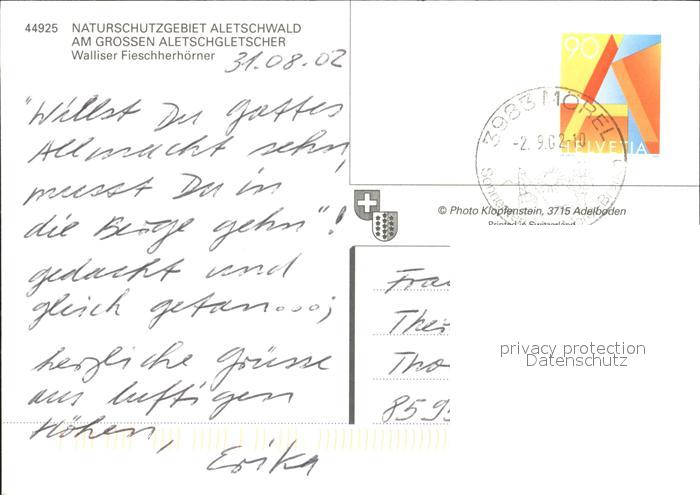 44925 NATURSCHUTZGEBIET ALETSCHWALD
AM GROSSEN ALETSCHGLETSCHER
Walliser Fiescherhörner
31.08.02
"Willst Du Gottes
Allmacht sehn,
musst Du in
die Berge gehn"!
gedacht und
gleich getan...;
herzliche Grüsse
aus luftigen
Höhen,
Erika
90
HELVETIA
3983 MÖREL
-2. 9.02.10
© Photo Klopfenstein, 3715 Adelboden
Printed in Switzerland
Frau
Tho
privacy protection
Datenschutz